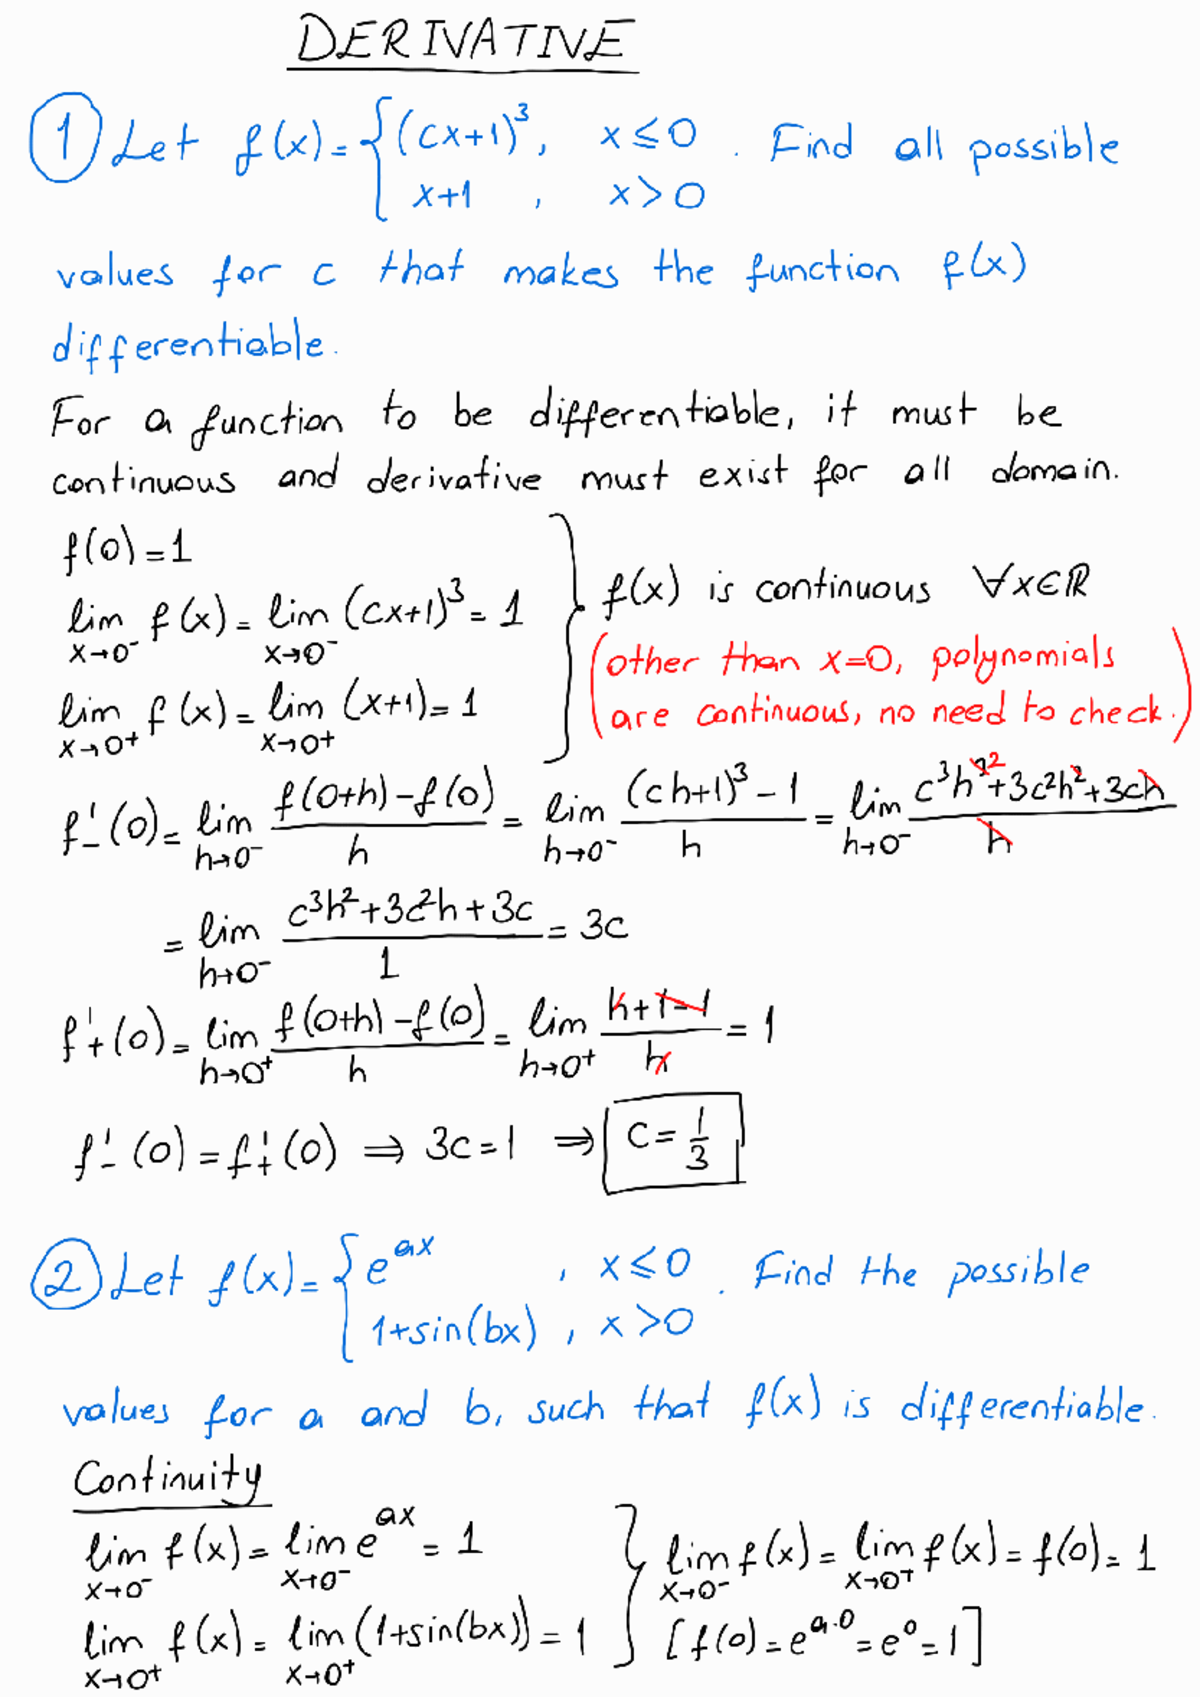 DERIVATIVE
① Let f(x) = { (cx+1)³, x ≤ 0 . Find all possible
x+1 , x > 0
values for c that makes the function f(x)
differentiable.
For a function to be differentiable, it must be
continuous and derivative must exist for all domain.
f(0) = 1
lim x→0⁻ f(x) = lim x→0⁻ (cx+1)³ = 1 } f(x) is continuous ∀x∈ℝ
(other than x=0, polynomials
lim x→0⁺ f(x) = lim x→0⁺ (x+1) = 1
are continuous, no need to check.)
f'₋(0) = lim h→0⁻ (f(0+h) - f(0))/h = lim h→0⁻ ((ch+1)³ - 1)/h = lim h→0⁻ (c³h³² + 3c²h² + 3ch)/h
= lim h→0⁻ (c³h² + 3c²h + 3c)/1 = 3c
f'₊(0) = lim h→0⁺ (f(0+h) - f(0))/h = lim h→0⁺ (h+1-1)/h = 1
f'₋(0) = f'₊(0) ⇒ 3c = 1 ⇒ c = 1/3
② Let f(x) = { e^(ax) , x ≤ 0 . Find the possible
1+sin(bx) , x > 0
values for a and b, such that f(x) is differentiable.
Continuity
lim x→0⁻ f(x) = lim x→0⁻ e^(ax) = 1 } lim x→0⁻ f(x) = lim x→0⁺ f(x) = f(0) = 1
lim x→0⁺ f(x) = lim x→0⁺ (1+sin(bx)) = 1 [f(0) = e^(a·0) = e⁰ = 1]